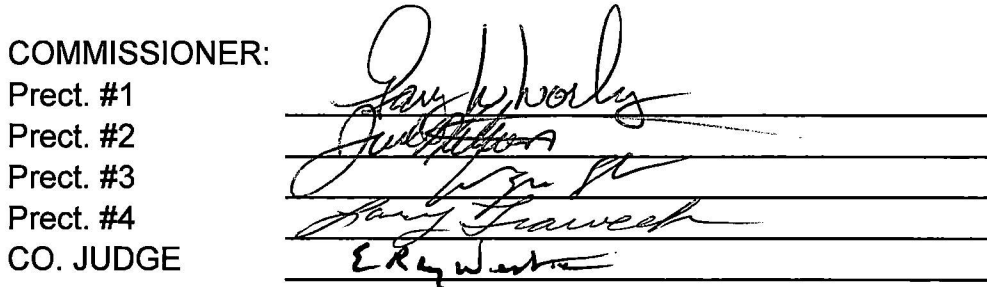 COMMISSIONER:
Prect. #1 Gary W Worley
Prect. #2
Prect. #3
Prect. #4 Larry Traweek
CO. JUDGE E Ray West